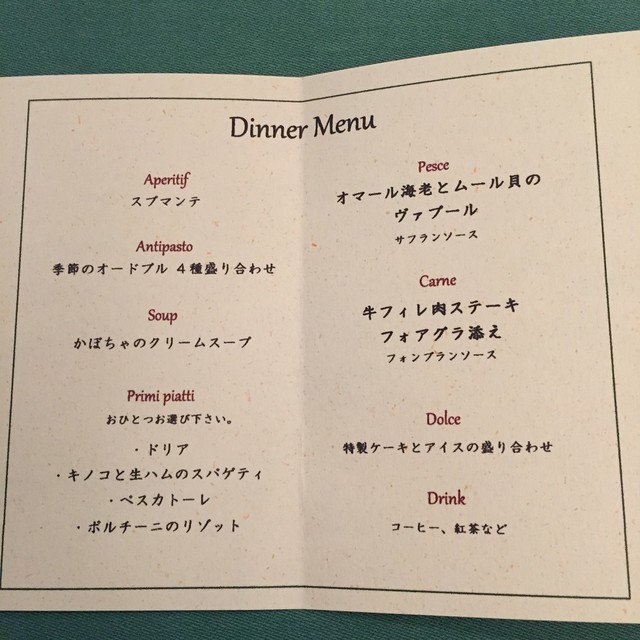 Dinner Menu
Aperitif
スプマンテ
Antipasto
季節のオードブル 4種盛り合わせ
Soup
かぼちゃのクリームスープ
Primi piatti
おひとつお選び下さい。
・ドリア
・キノコと生ハムのスパゲティ
・ペスカトーレ
・ポルチーニのリゾット
Pesce
オマール海老とムール貝の
ヴァプール
サフランソース
Carne
牛フィレ肉ステーキ
フォアグラ添え
フォンブランソース
Dolce
特製ケーキとアイスの盛り合わせ
Drink
コーヒー、紅茶など